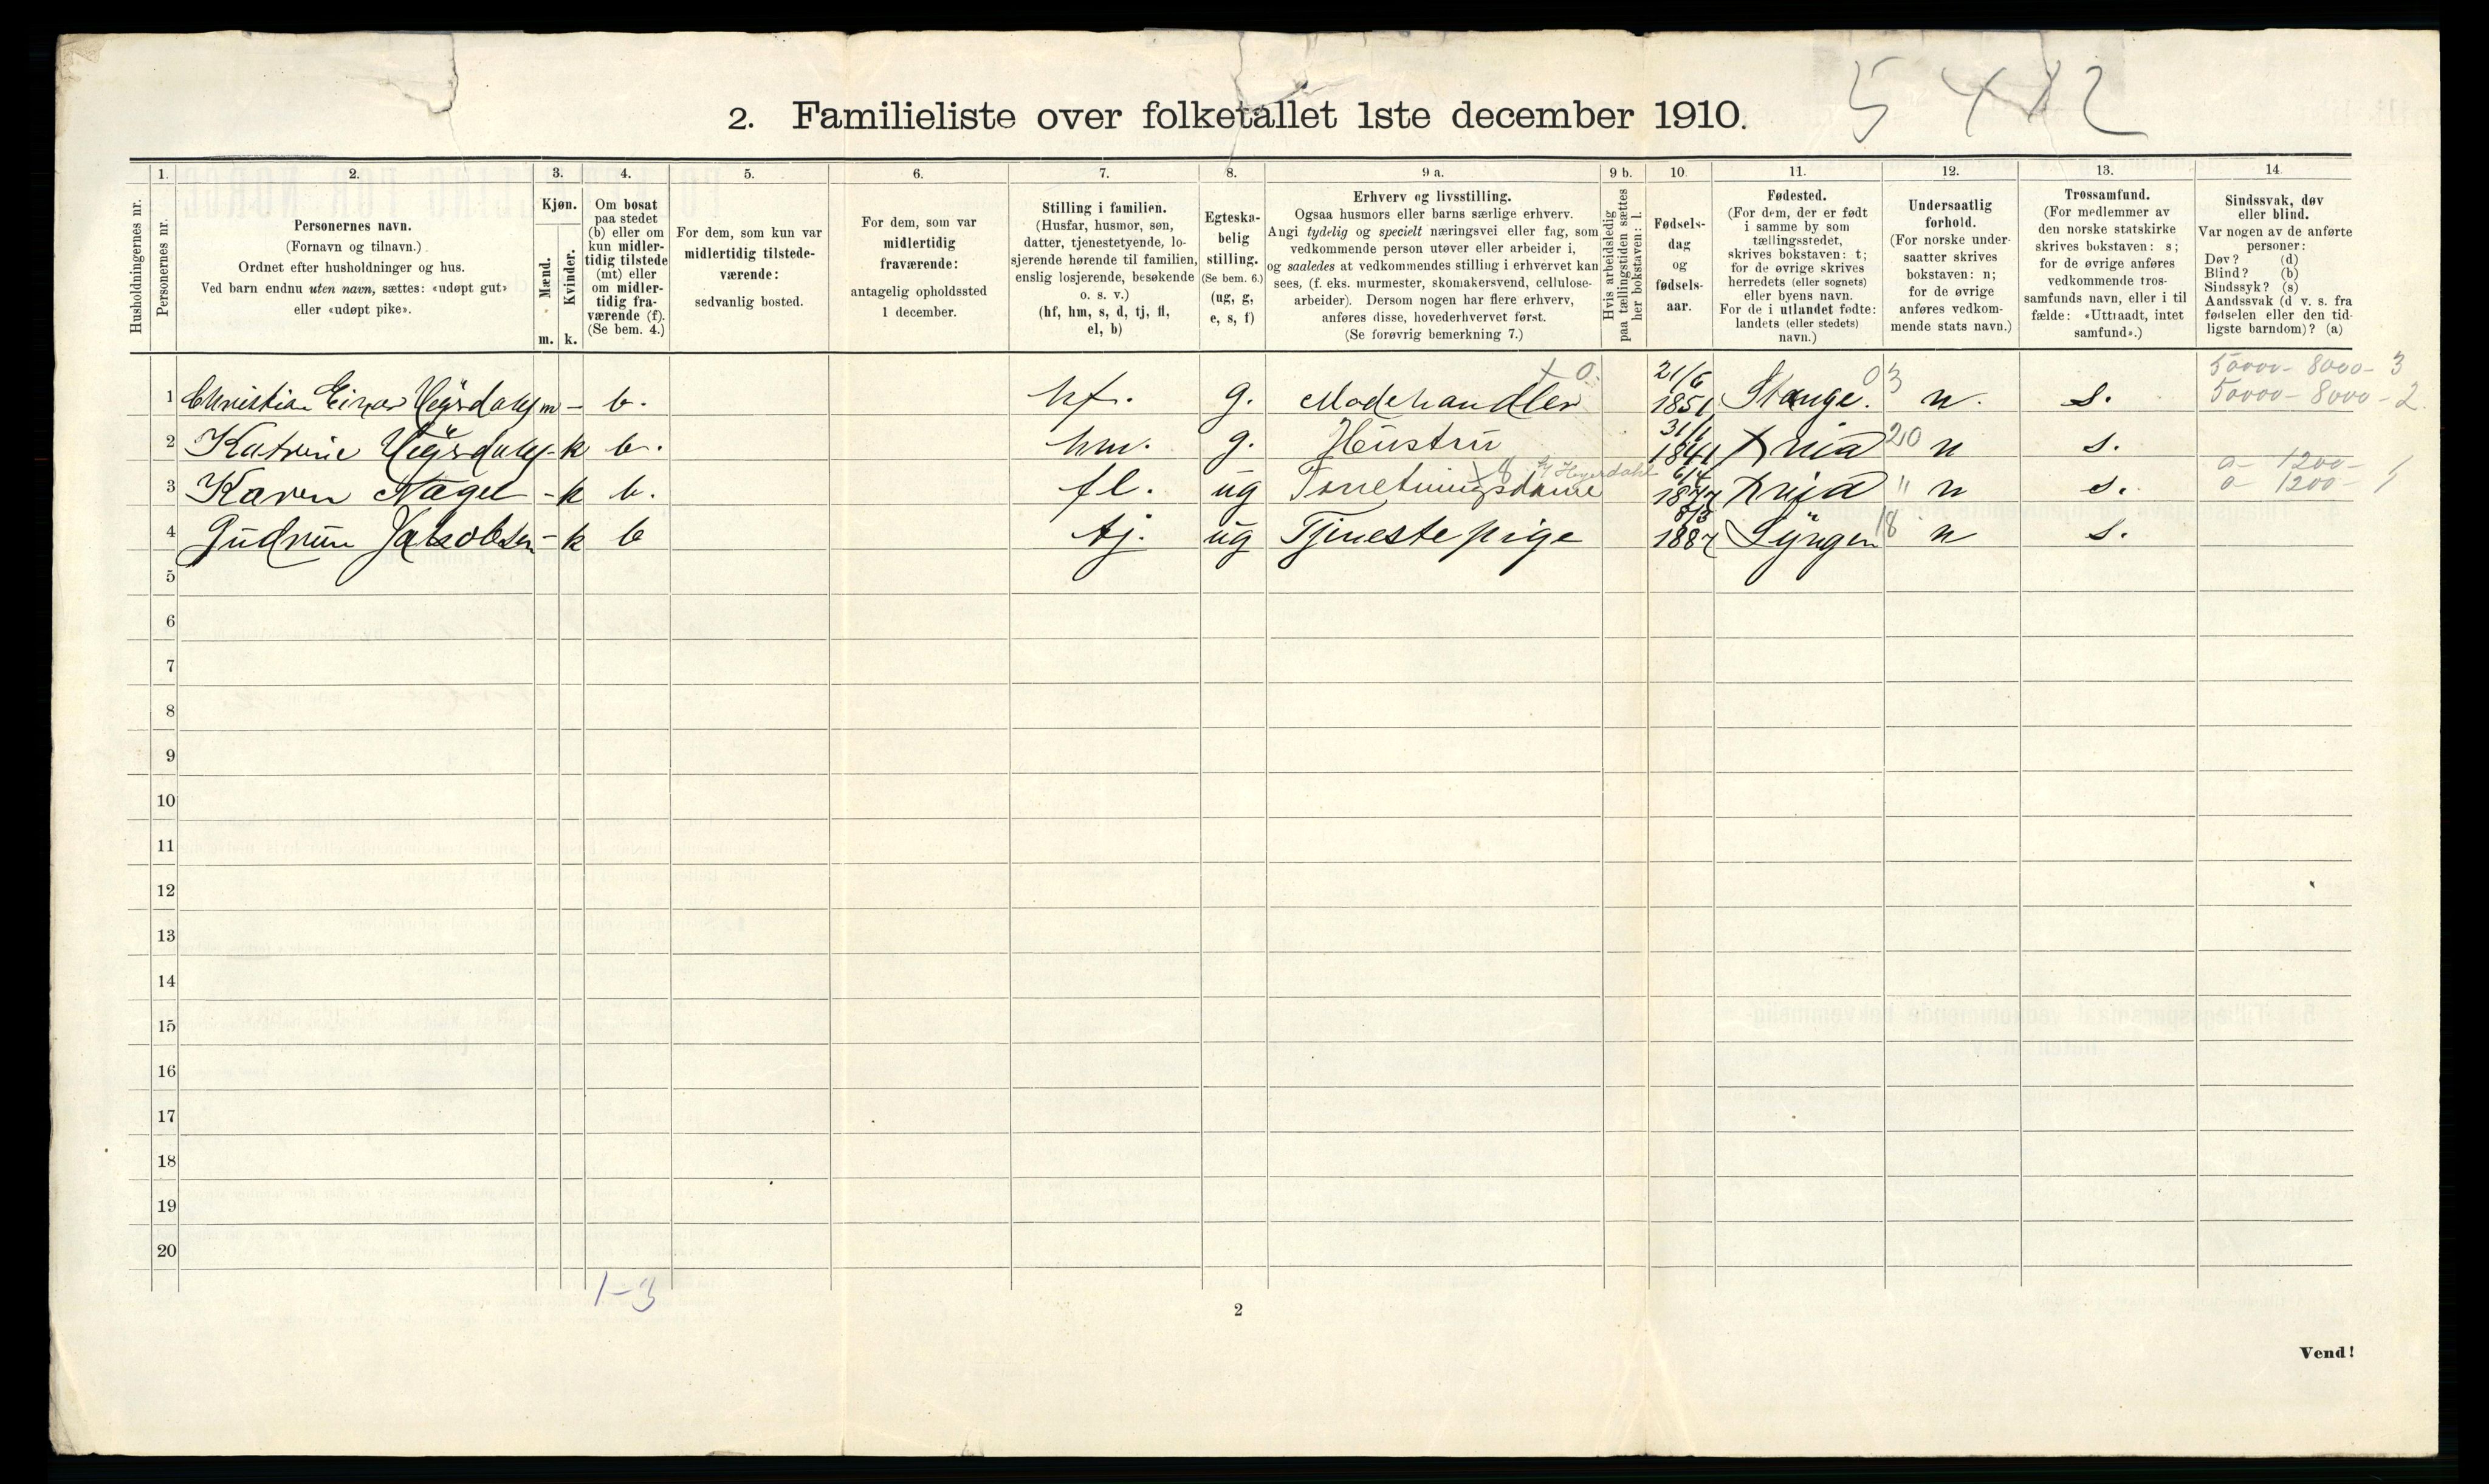 5 4 12
2. Familieliste over folketallet 1ste december 1910.
1. 2. 3. 4. 5. 6. 7. 8. 9 a. 9 b. 10. 11. 12. 13. 14.
Husholdningernes nr.
Personernes nr.
Personernes navn.
(Fornavn og tilnavn.)
Ordnet efter husholdninger og hus.
Ved barn endnu uten navn, sættes: «udøpt gut»
eller «udøpt pike».
Kjøn.
Mænd.
m.
Kvinder.
k.
Om bosat
paa stedet
(b) eller om
kun midler-
tidig tilstede
(mt) eller
om midler-
tidig fra-
værende (f).
(Se bem. 4.)
For dem, som kun var
midlertidig tilstede-
værende:
sedvanlig bosted.
For dem, som var
midlertidig
fraværende:
antagelig opholdssted
1 december.
Stilling i familien.
(Husfar, husmor, søn,
datter, tjenestetyende, lo-
sjerende hørende til familien,
enslig losjerende, besøkende
o. s. v.)
(hf, hm, s, d, tj, fl,
el, b)
Egteska-
belig
stilling.
(Se bem. 6.)
(ug, g,
e, s, f)
Erhverv og livsstilling.
Ogsaa husmors eller barns særlige erhverv.
Angi tydelig og specielt næringsvei eller fag, som
vedkommende person utøver eller arbeider i,
og saaledes at vedkommendes stilling i erhvervet kan
sees, (f. eks. murmester, skomakersvend, cellulose-
arbeider). Dersom nogen har flere erhverv,
anføres disse, hovederhvervet først.
(Se forøvrig bemerkning 7.)
Hvis arbeidsledig
paa tællingstiden sættes
her bokstaven: l.
Fødsels-
dag
og
fødsels-
aar.
Fødested.
(For dem, der er født
i samme by som
tællingsstedet,
skrives bokstaven: t;
for de øvrige skrives
herredets (eller sognets)
eller byens navn.
For de i utlandet fødte:
landets (eller stedets)
navn.)
Undersaatlig
forhold.
(For norske under-
saatter skrives
bokstaven: n;
for de øvrige
anføres vedkom-
mende stats navn.)
Trossamfund.
(For medlemmer av
den norske statskirke
skrives bokstaven: s;
for de øvrige anføres
vedkommende tros-
samfunds navn, eller i til
fælde: «Uttraadt, intet
samfund».)
Sindssvak, døv
eller blind.
Var nogen av de anførte
personer:
Døv? (d)
Blind? (b)
Sindssyk? (s)
Aandssvak (d v. s. fra
fødselen eller den tid-
ligste barndom)? (a)
50000 - 8000 - 3
1 Christian Einar m - b. hf. g. Modehandler x 0. 21/6 1851 Stange. 03 n. s. 50000 - 8000 - 2
2 Katrine - k b. hm. g. Hustru 31/1 1841 Kria 20 n s.
0 - 1200 - 1
3 Karen Nagel - k b. fl. ug Forretningsdame Heyerdahl 6/4 Kria " n s. 0 - 1200 - 1
4 Gudrun Jakobsen - k b tj. ug Tjenestepige 8/3 1887 Lyngen 18 n s.
5
6
7
8
9
10
11
12
13
14
15
16
17
18
19
20
1-3
2
Vend!